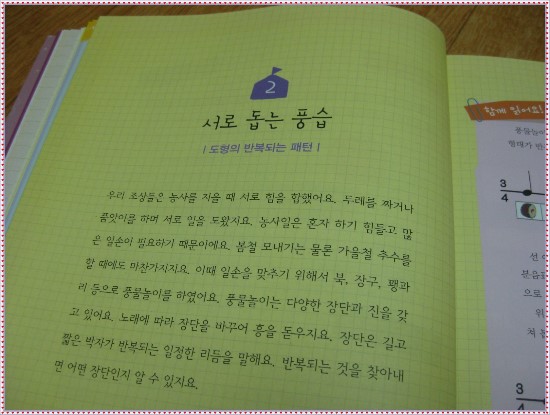 2
서로 돕는 풍습
| 도형의 반복되는 패턴 |
우리 조상들은 농사를 지을 때 서로 힘을 합했어요. 두레를 짜거나
품앗이를 하며 서로 일을 도왔지요. 농사일은 혼자 하기 힘들고 많
은 일손이 필요하기 때문이에요. 봄철 모내기는 물론 가을철 추수를
할 때에도 마찬가지지요. 이때 일손을 맞추기 위해서 북, 장구, 꽹과
리 등으로 풍물놀이를 하였어요. 풍물놀이는 다양한 장단과 진을 갖
고 있어요. 노래에 따라 장단을 바꾸어 흥을 돋우지요. 장단은 길고
짧은 박자가 반복되는 일정한 리듬을 말해요. 반복되는 것을 찾아내
면 어떤 장단인지 알 수 있지요.
함께 읽어요!
풍물놀이
형태가 반
3
4
선 이
분음표
으로
위
쳐 본
3
4